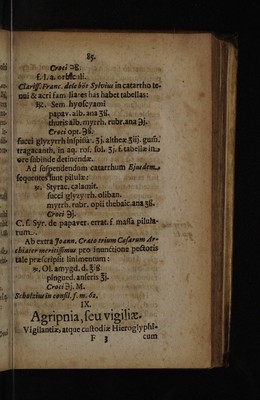 85.
Croci ℈ß.
f. l. a. orbic li.
Clariss. Franc. dele boë Sylvius in catarrho te-
nui & acri familiares has habet tabellas:
℞. Sem. hyoscyami
papav. alb. ana ʒß.
thuris alb. myrrh. rubr. ana ℈j.
Croci opt. ℈ß.
succi glyzyrrh. inspiss. ʒj. altheæ ʒiij. gum.
tragacanth. in aq. ros. sol. ʒj. f. tabellæ in
ore subinde detinendæ.
Ad suspendendum catarrhum Ejusdem
sequentes sunt pilulæ:
℞. Styrac. calamit.
succi glyzyrrh. oliban.
myrrh. rubr. opii thebaic. ana ʒß.
Croci ℈j.
C. f. Syr. de papaver. errat. f. massa pilula-
rum.
Ab extra Joann. Crato trium Cæsarum Ar-
chiater meritissimus pro inunctione pectoris
tale præscripsit linimentum:
℞. Ol. amygd. d. ℥iß
pingued. anseris ℥j.
Croci ℈j. M.
Scholzius in consil. f. m. &c.
IX.
Agripnia, seu vigiliæ.
Vigilantiæ, atque custodiæ Hieroglyphi-
F 3 cum